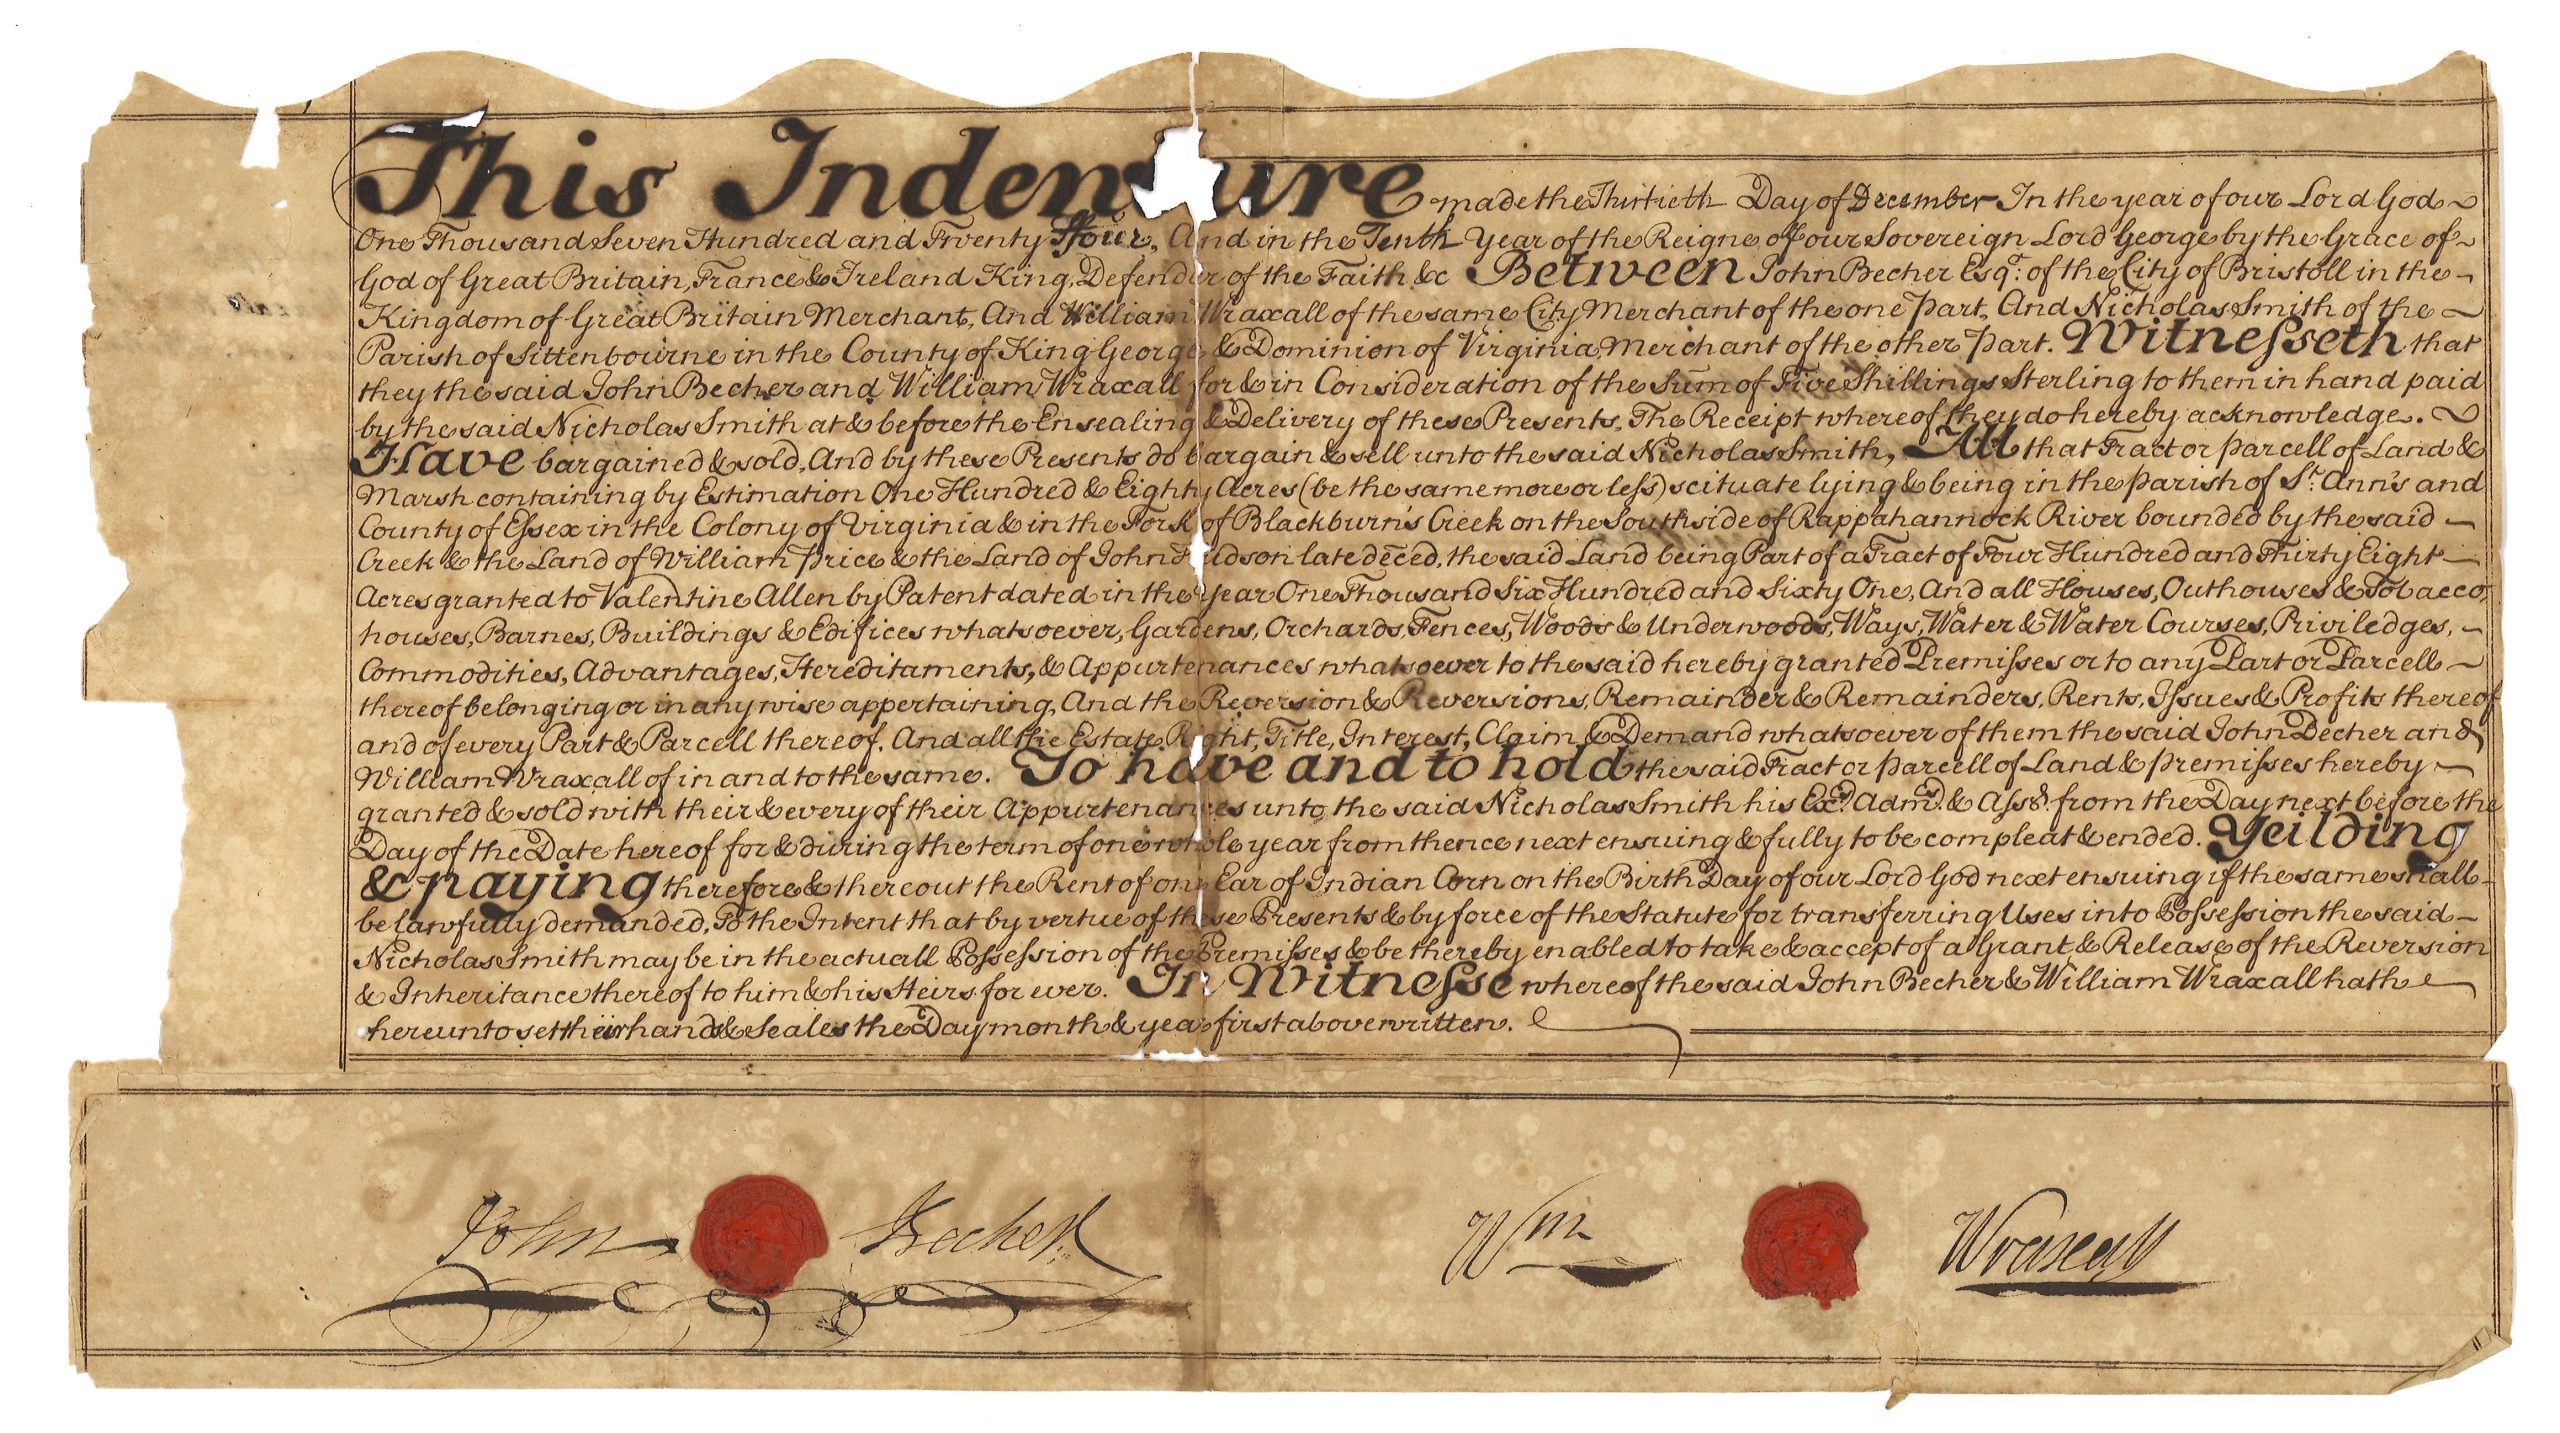 This Indenture made the Thirtieth Day of December In the year of our Lord God
One Thousand Seven Hundred and Twenty Ffour, And in the Tenth Year of the Reigne of our Sovereign Lord George by the Grace of
God of Great Britain, France & Ireland King, Defender of the Faith &c Between John Becher Esqr. of the City of Bristoll in the
Kingdom of Great Britain Merchant, And William Wraxall of the same City Merchant of the one part, And Nicholas Smith of the
Parish of Sittenbourne in the County of King George & Dominion of Virginia Merchant of the other part. Witnesseth that
they the said John Becher and William Wraxall for & in Consideration of the Sum of Five Shillings Sterling to them in hand paid
by the said Nicholas Smith at & before the Ensealing & Delivery of these Presents, The Receipt whereof they do hereby acknowledge.
Have bargained & sold, And by these Presents do bargain & sell unto the said Nicholas Smith, All that Tract or parcell of Land &
Marsh containing by Estimation One Hundred & Eighty Acres (be the same more or less) scituate lying & being in the parish of St. Ann's and
County of Essex in the Colony of Virginia & in the Fork of Blackburn's Creek on the Southside of Rappahannock River bounded by the said
Creek & the Land of William Price & the Land of John late deced, the said Land being Part of a Tract of Four Hundred and Thirty Eight
Acres granted to Valentine Allen by Patent dated in the year One Thousand Six Hundred and Sixty One, And all Houses, Outhouses & Tobacco,
houses, Barnes, Buildings & Edifices whatsoever, Gardens, Orchards, Fences, Woods & Underwoods, Ways, Water & Water Courses, Priviledges,
Commodities, Advantages, Hereditaments, & Appurtenances whatsoever to the said hereby granted Premisses or to any Part or Parcell
thereof belonging or in any wise appertaining, And the Reversion & Reversions, Remainder & Remainders, Rents, Issues & Profits thereof
and of every Part & Parcell thereof. And all the Estate, Right, Title, Interest, Claim & Demand whatsoever of them the said John Becher and
William Wraxall of in and to the same. To have and to hold the said Tract or parcell of Land & premisses hereby
granted & sold with their & every of their Appurtenances unto the said Nicholas Smith his Exrs. Admrs. & Asss. from the Day next before the
Day of the Date hereof for & during the term of one whole year from thence next ensuing & fully to be compleat & ended. Yeilding
& paying therefore & thereout the Rent of one Ear of Indian Corn on the Birth Day of our Lord God next ensuing if the same shall
be lawfully demanded, To the Intent that by vertue of these Presents & by force of the Statute for transferring Uses into Possession the said
Nicholas Smith may be in the actuall Possession of the Premisses & be thereby enabled to take & accept of a Grant & Release of the Reversion
& Inheritance thereof to him & his Heirs for ever. In Witnesse whereof the said John Becher & William Wraxall hath
hereunto set their hands & Seales the Day month & year first above written.
John Becher
Wm Wraxall